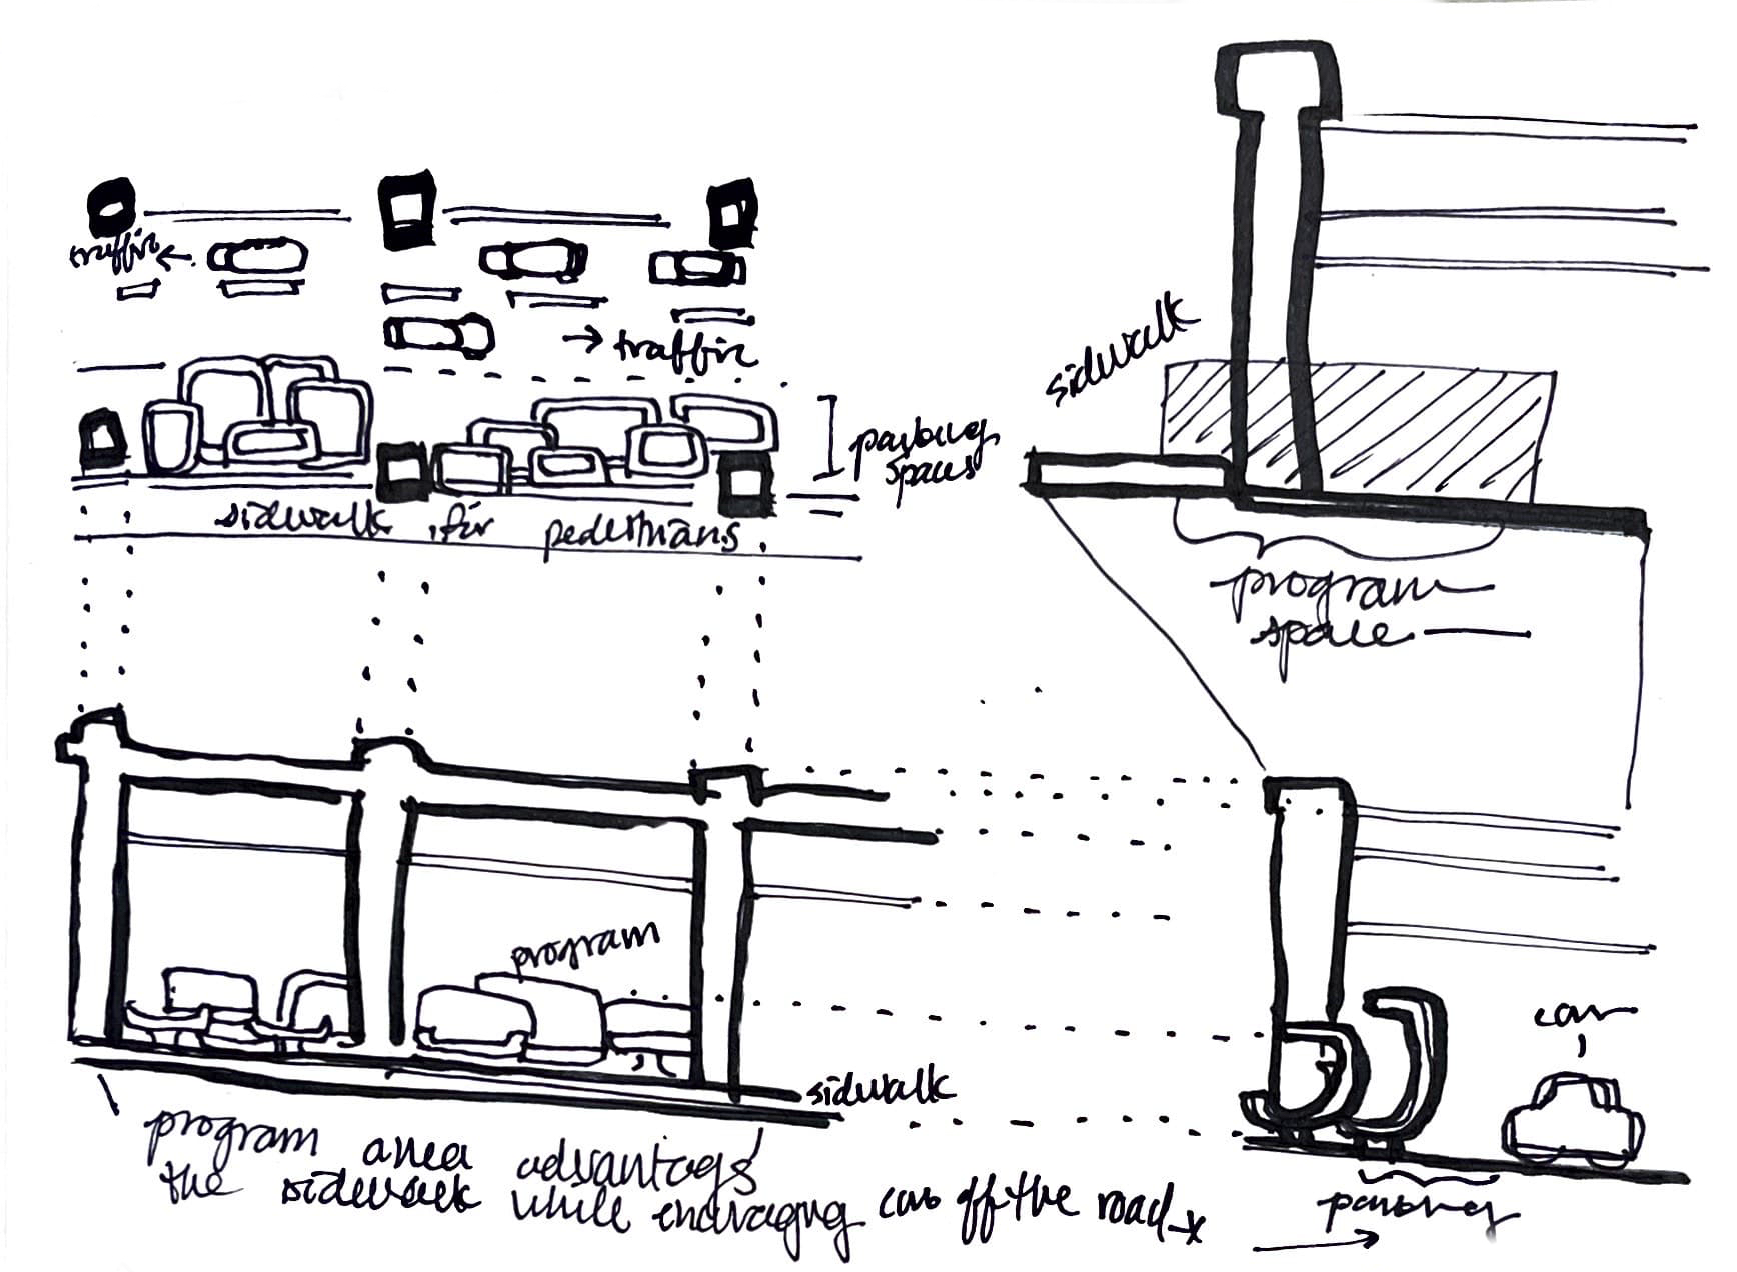 traffic
traffic
parking
spaces
sidewalk for pedestrians
sidewalk
program
space
program
sidewalk
car
program area advantags
the sidewalk while encouraging cars off the road
parking